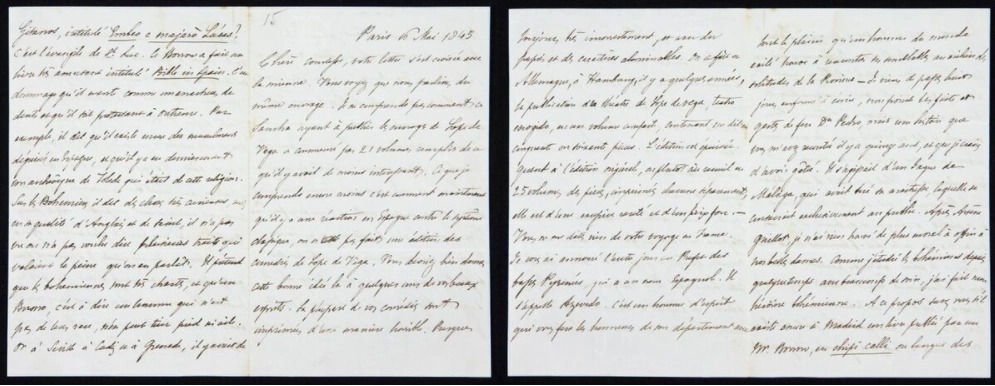 Gitanos, intitulé Embeo e majaró Lucas?
C'est l'évangile de St. Luc. Ce Borrow a fait un
livre très amusant intitulé Bible in Spain. C'est
dommage qu'il mente comme un arracheur de
dents et qu'il soit protestant à outrance. Par
exemple, il dit qu'il existe encore des musulmans
déguisés en Espagne, et qu'il y a eu dernièrement
un archevêque de Tolède qui était de cette religion.
Sur les Bohémiens, il dit des choses très curieuses, mais
en sa qualité d'Anglais et de saint, il n'a pas
vu ou n'a pas voulu dire plusieurs traits qui
valaient la peine qu'on en parlât. Il prétend
que les bohémiennes sont très chastes, et qu'un
Busno, c'est à dire un homme qui n'est
pas de leur race, n'en peut tirer pied ni aile.
Or à Séville à Cadiz et à Grenade, il y avait de
15
Paris 16 Mai 1845
Chère comtesse, votre lettre s'est croisée avec
la mienne. Vous voyez que nous parlions du
même ouvrage. Je ne comprends pas comment
Sancha ayant à publier les ouvrages de Lope de
Vega a commencé par 21 volumes remplis de ce
qu'il y avait de moins intéressant. Ce que je
comprends encore moins c'est comment maintenant
qu'il y a une réaction en Espagne contre le système
classique, on n'ait pas fait une édition des
comédies de Lope de Vega. Vous devriez bien donner
cette bonne idée là à quelques uns de vos beaux
esprits. La plupart de ces comédies sont
imprimées d'une manière horrible. Presque
toujours très incorrectement, et avec des
papiers et des caractères abominables. On a fait en
Allemagne, à Hambourg, il y a quelques années,
la publication d'un théâtre de Lope de Vega, teatro
escogido, en un volume compact, contenant
cinquante ou soixante pièces. L'édition est épuisée.
Quant à l'édition originale, ou plutôt au recueil en
25 volumes, de pièces, imprimées chacune séparément,
elle est d'une extrême rareté et d'un prix fou. —
Vous ne me dites rien de votre voyage en France.
Je vous ai annoncé l'autre jour un Préfet des
basses Pyrénées, qui a un nom Espagnol. Il
s'appelle Azevedo. C'est un homme d'esprit
qui vous fera les honneurs de son département avec
tout le plaisir qu'un homme du monde
exilé trouve à rencontrer ses semblables au milieu des
solitudes de la Province. — Je viens de passer huit
jours enfermé à écrire, non point les faits et
gestes de feu Dn. Pedro, mais une histoire que
vous m'avez racontée il y a quinze ans, et que je crains
d'avoir gâtée. Il s'agissait d'un Jaque de
Malaga, qui avait tué sa maîtresse, laquelle se
consacrait exclusivement au public. Après Arsène
Guillot, je n'ai rien trouvé de plus moral à offrir à
nos belles dames. Comme j'étudie les bohémiens depuis
quelque temps avec beaucoup de soin, j'ai fait mon
héroïne bohémienne. A ce propos savez vous s'il
existe encore à Madrid un livre publié par un
Mr. Borrow, en chipi calli ou langue des